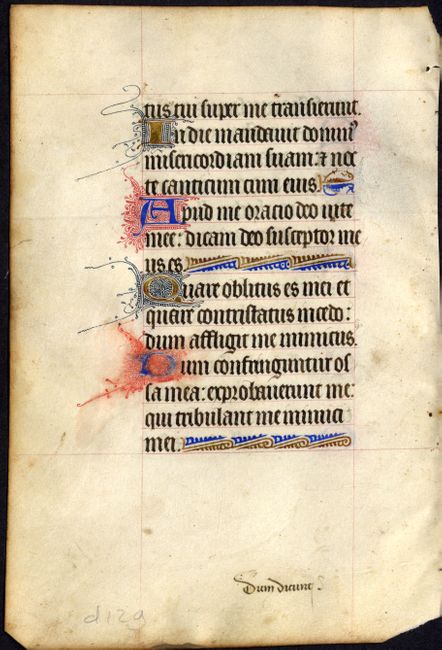 tus tui super me transierunt.
In die mandauit domin᾽
misericordiam suam: ⁊ noc
te canticum cum eius
Apud me oracio deo uite
mee: dicam deo susceptor me
us es
Quare oblitus es mei et
quare contristatus incedo:
dum affligit me inimicus.
Dum confringuntur os
sa mea: exprobauerunt me:
qui tribulant me inimici
mei.
Dum dicunt
d129